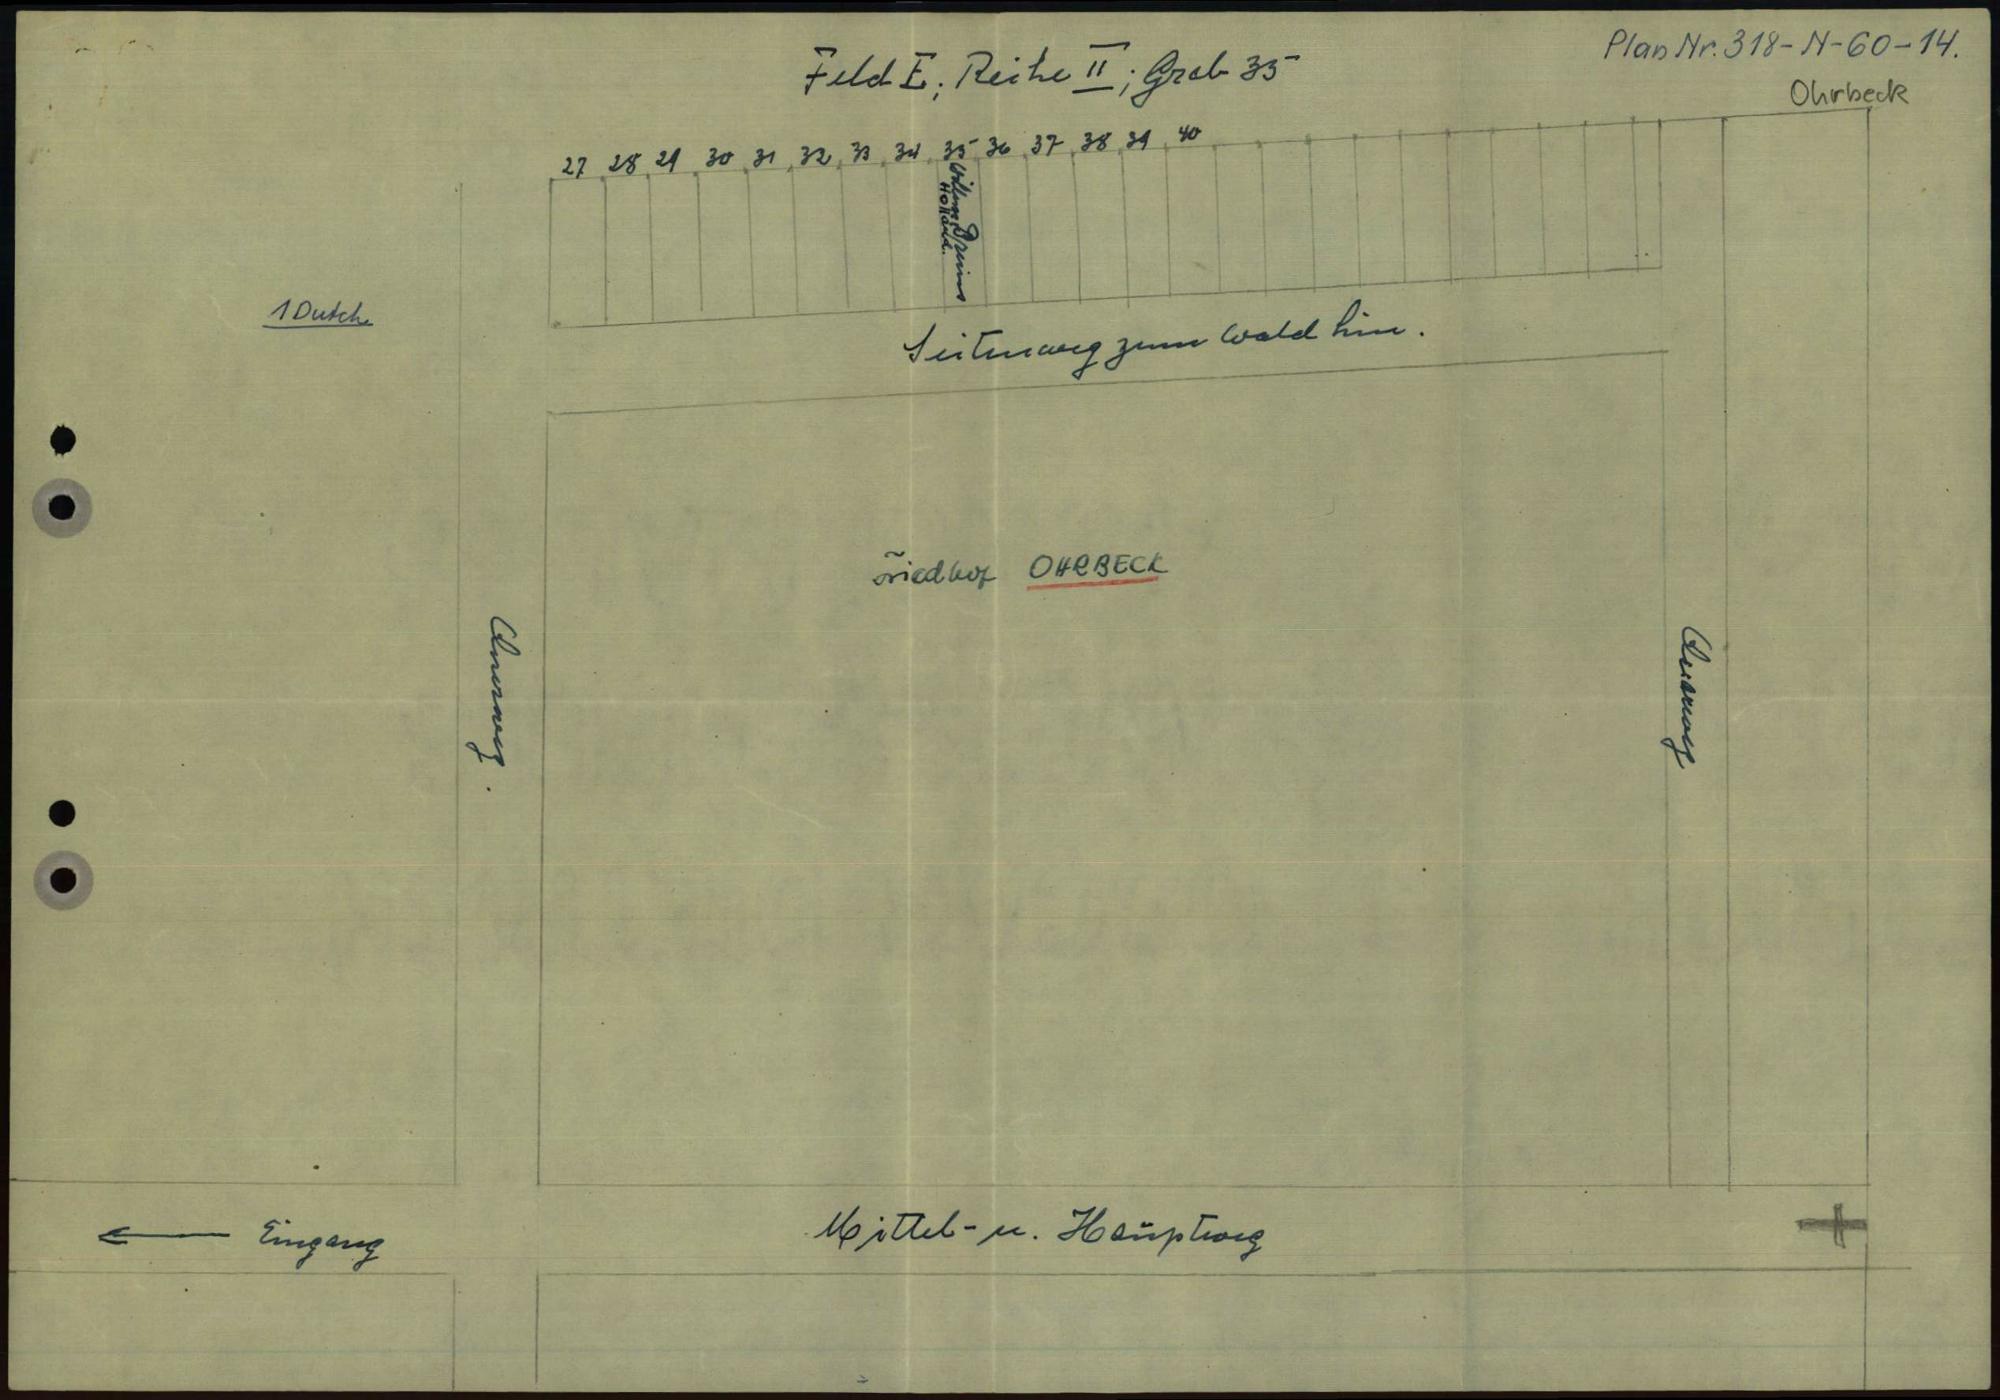 Plan Nr. 318-N-60-14.
Ohrbeck
Feld E; Reihe II; Grab 35
27 28 29 30 31 32 33 34 35 36 37 38 39 40
Holland.
1 Dutch
Seitenweg zum Wald hin.
Friedhof OHRBECK
Querweg.
Querweg
Eingang
Mittel- u. Hauptweg